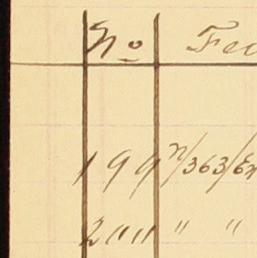 No Fee
199 n/363/En
200 " "